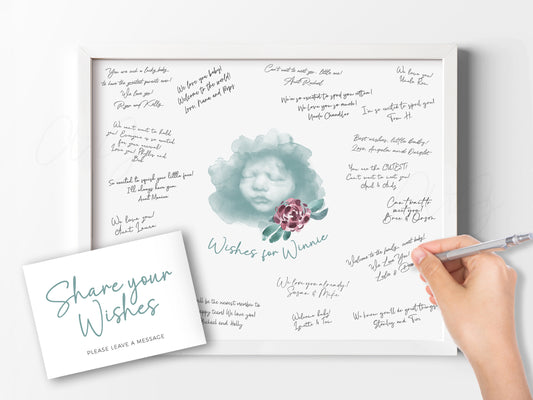 You are such a lucky baby,
to have the greatest parents ever!
We love you!
Papa and Kelly.
We love you baby!
Welcome to the world!
Love, Nana and Pops
Can't wait to meet you, little one!
Aunt Rachel
We love you!
Uncle Ben
We're so excited to spoil you rotten!
We love you so much!
Uncle Chandler
I'm so excited to spoil you!
Tom H.
We can't wait to hold
you! Everyone is so excited
for your arrival!
Love you! Phyllis and
Bob
Best wishes, little Baby!
Love, Angela and Dwight
You are the CUTEST!
Can't wait to meet you!
Andy
So excited to squish your little face!
I'll always love you,
Aunt Monica
Can't wait to
meet you!
We love you!
Aunt Laura
Wishes for Winnie
Welcome to the family, sweet baby!
We Love You!
We love you already!
Susan & Mike
Share your
Wishes
PLEASE LEAVE A MESSAGE
be the newest member to
family! We love you!
and Holly
Welcome baby!
We know you'll do great things!
Stanley and Tom